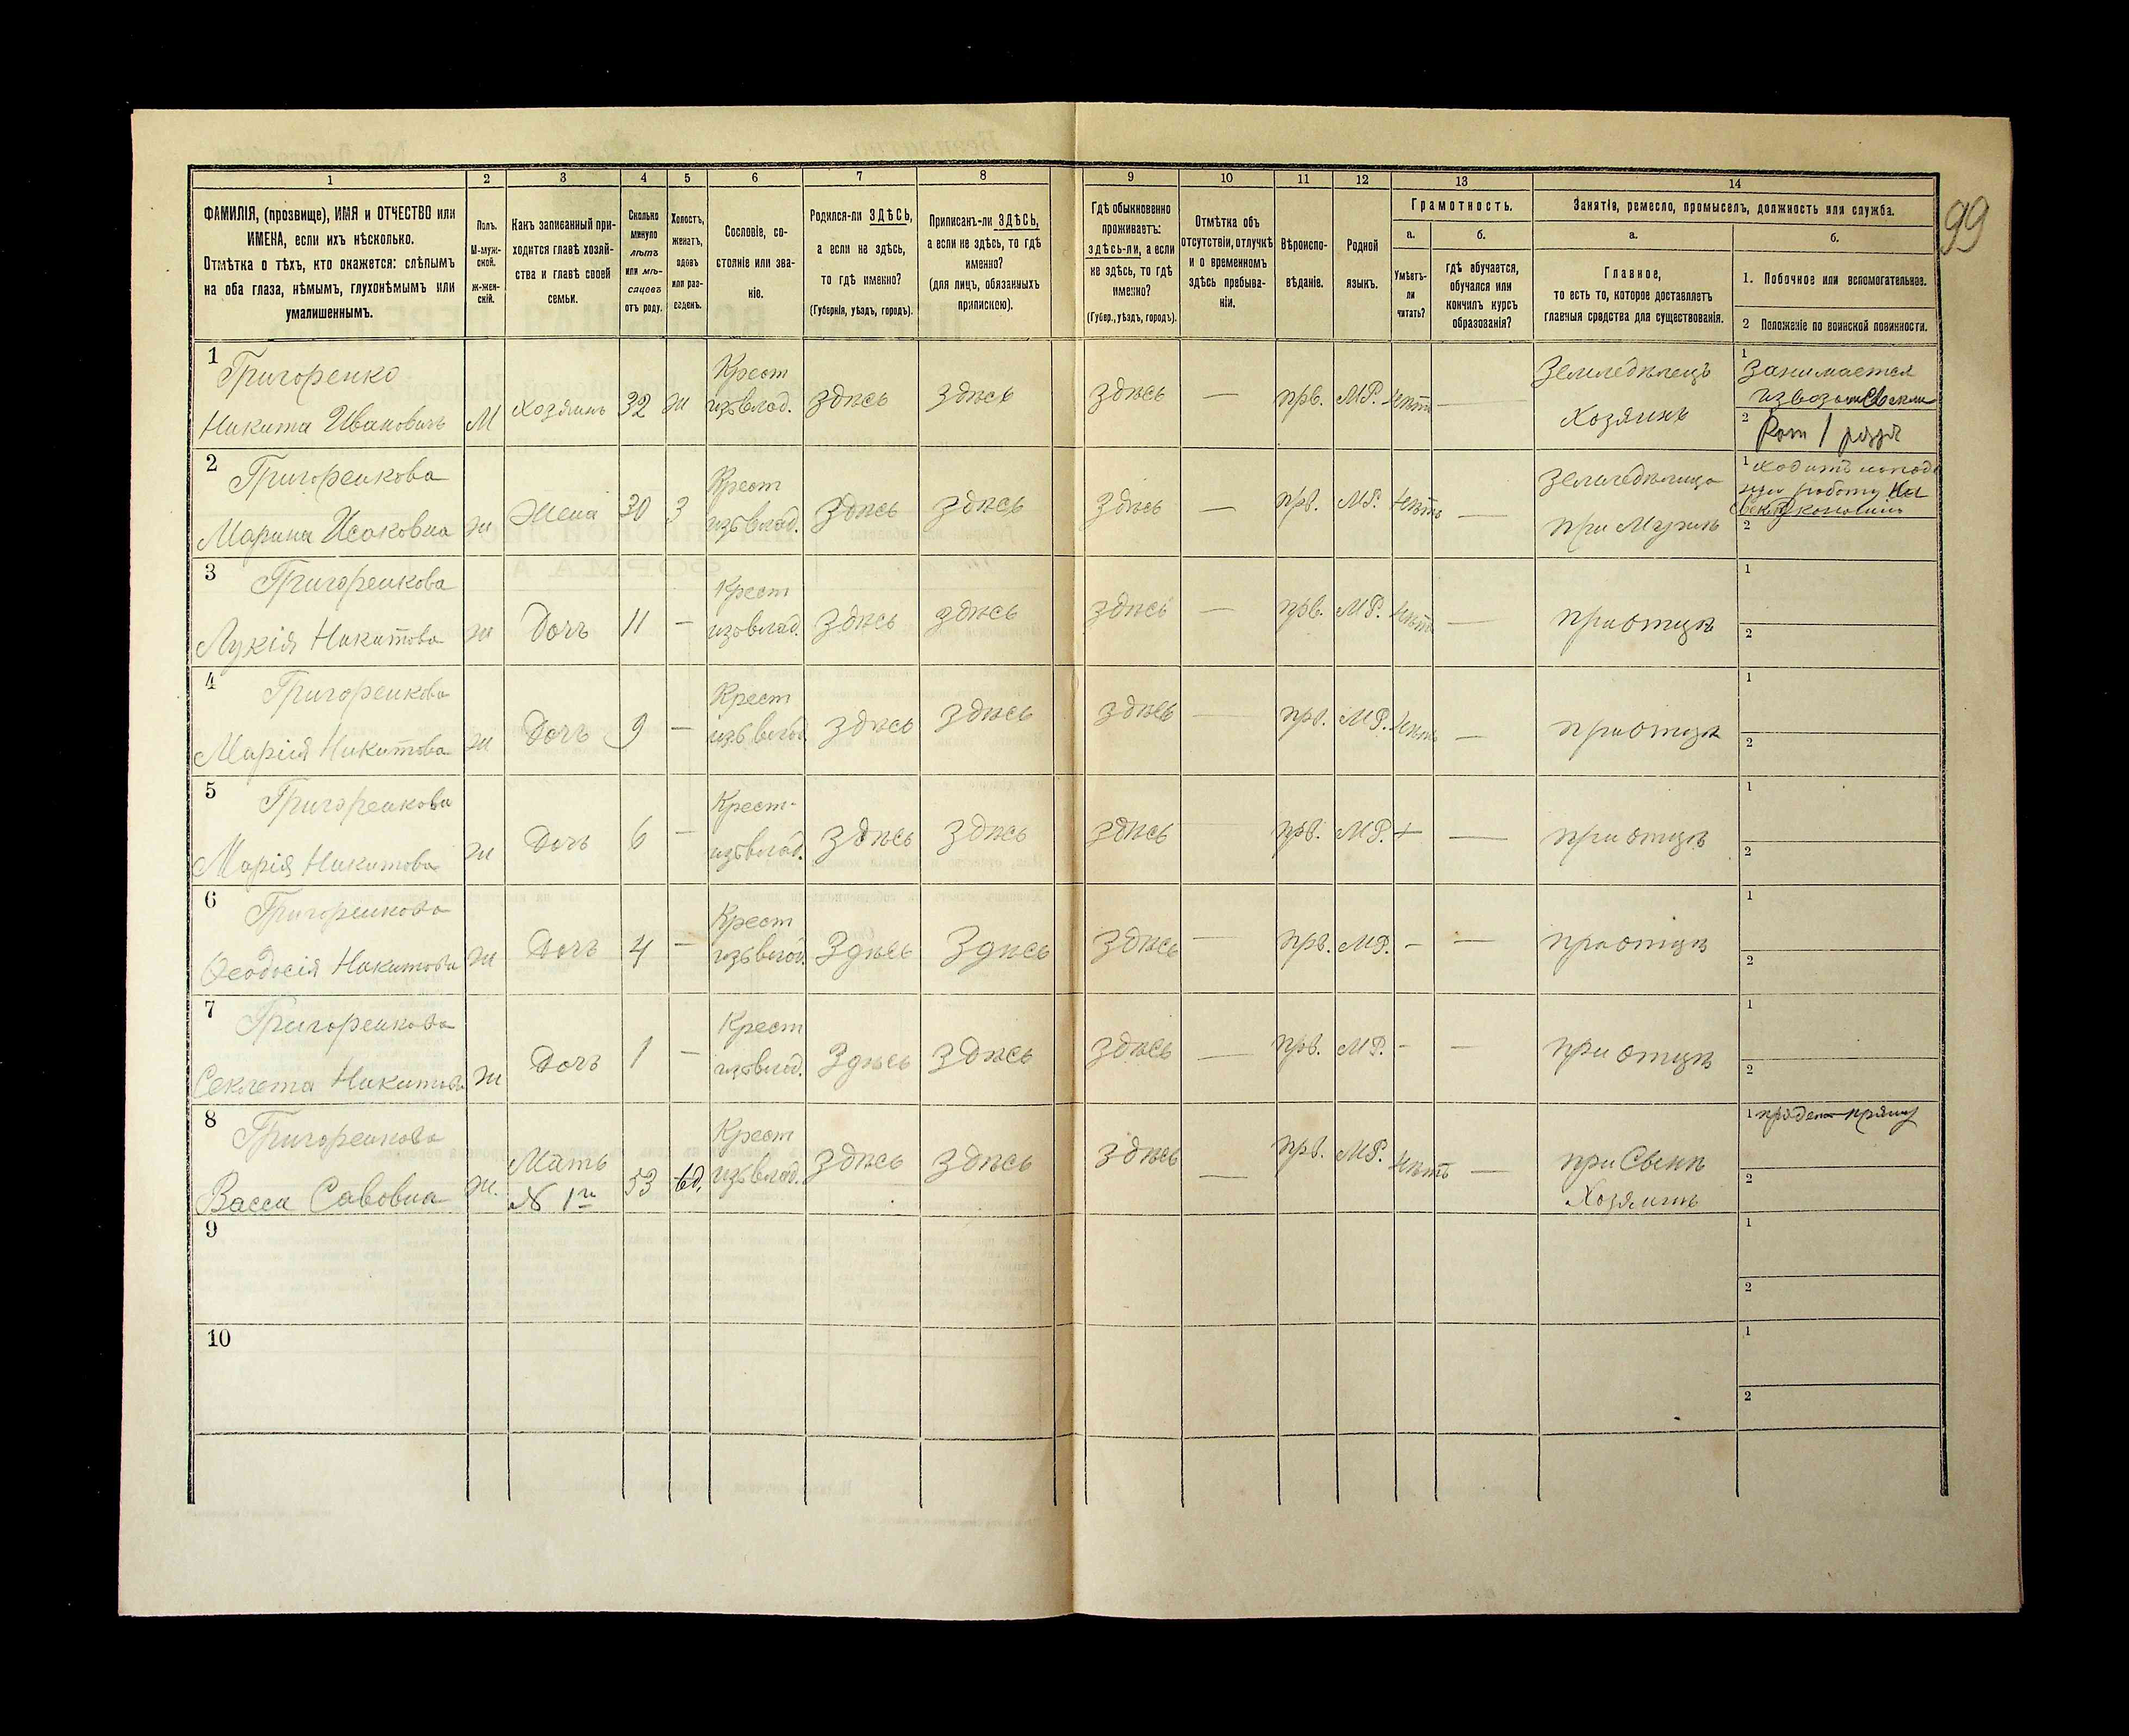 99
1 2 3 4 5 6 7 8 9 10 11 12 13 14
ФАМИЛІЯ, (прозвище), ИМЯ и ОТЧЕСТВО или
ИМЕНА, если ихъ нѣсколько.
Отмѣтка о тѣхъ, кто окажется: слѣпымъ
на оба глаза, нѣмымъ, глухонѣмымъ или
умалишеннымъ.
Полъ.
М-муж-
ской.
ж-жен-
скій.
Какъ записанный при-
ходится главѣ хозяй-
ства и главѣ своей
семьи.
Сколько
минуло
лѣтъ
или мѣ-
сяцовъ
отъ роду.
Холостъ,
женатъ,
вдовъ
или раз-
веденъ.
Сословіе, со-
стояніе или зва-
ніе.
Родился-ли ЗДѢСЬ,
а если не здѣсь,
то гдѣ именно?
(Губернія, уѣздъ, городъ).
Приписанъ-ли ЗДѢСЬ,
а если не здѣсь, то гдѣ
именно?
(для лицъ, обязанныхъ
припискою).
Гдѣ обыкновенно
проживаетъ:
здѣсь-ли, а если
не здѣсь, то гдѣ
именно?
(Губер., уѣздъ, городъ).
Отмѣтка объ
отсутствіи, отлучкѣ
и о временномъ
здѣсь пребыва-
ніи.
Вѣроиспо-
вѣданіе.
Родной
языкъ.
Грамотность.
а.
Умѣетъ-
ли
читать?
б.
гдѣ обучается,
обучался или
кончилъ курсъ
образованія?
Занятіе, ремесло, промыселъ, должность или служба.
а.
Главное,
то есть то, которое доставляетъ
главныя средства для существованія.
б.
1. Побочное или вспомогательное.
2 Положеніе по воинской повинности.
1
Григоренко
Никита Ивановичъ
М
хозяинъ
32
ж
Крест
изъ влад.
здѣсь
здѣсь
здѣсь
—
прв.
МР.
нѣтъ
—
Земледѣлецъ
Хозяинъ
1
Занимается
2
2
Григоренкова
Марина Исаковна
ж
Жена
30
З
Крест
изъ влад.
здѣсь
здѣсь
здѣсь
—
прв.
МР.
нѣтъ
—
Земледѣлица
при Мужѣ
1 ходитъ
работу на
2
3
Григоренкова
Лукія Никитова
ж
Дочь
11
—
Крест
изъ влад.
здѣсь
здѣсь
здѣсь
—
прв.
МР.
нѣтъ
—
при отцѣ
1
2
4
Григоренкова
Марія Никитова
ж
Дочь
9
—
Крест
изъ влад.
здѣсь
здѣсь
здѣсь
—
прв.
МР.
нѣтъ
—
при отцѣ
1
2
5
Григоренкова
Марія Никитова
ж
Дочь
6
—
Крест-
изъ влад.
здѣсь
здѣсь
здѣсь
прв.
МР.
+
—
при отцѣ
1
2
6
Григоренкова
Ѳеодосія Никитова
ж
Дочь
4
—
Крест
изъ влад.
Здѣсь
Здѣсь
здѣсь
—
прв.
МР.
—
—
при отцѣ
1
2
7
Григоренкова
Секлета Никитова
ж
Дочь
1
—
Крест
изъ влад.
Здѣсь
здѣсь
здѣсь
—
прв.
МР.
—
—
при отцѣ
1
2
8
Григоренкова
Васса Савовна
ж.
Мать
N 1го
53
вд.
Крест
изъ влад.
здѣсь
здѣсь
здѣсь
—
прв.
МР.
нѣтъ
—
при Сынѣ
Хозяинъ
1 пряде пряжу
2
9
1
2
10
1
2